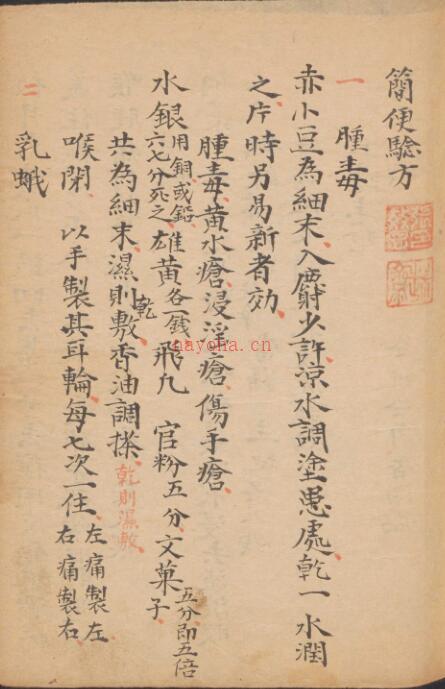 簡便驗方
一 腫毒
赤小豆為細末、入麝少許、涼水調塗患處、乾一水潤
之、片時另易新者效、
腫毒、黃水瘡、浸淫瘡、傷手瘡、
水銀用銅或鉛六七分死之、雄黃各一錢飛凡 官粉五分、文菓子五分即五倍
共為細末濕則乾敷、香油調搽、乾則濕敷
喉閉、以手製其耳輪、每七次一住、左痛製左、右痛製右、
二 乳蛾
nayona.cn